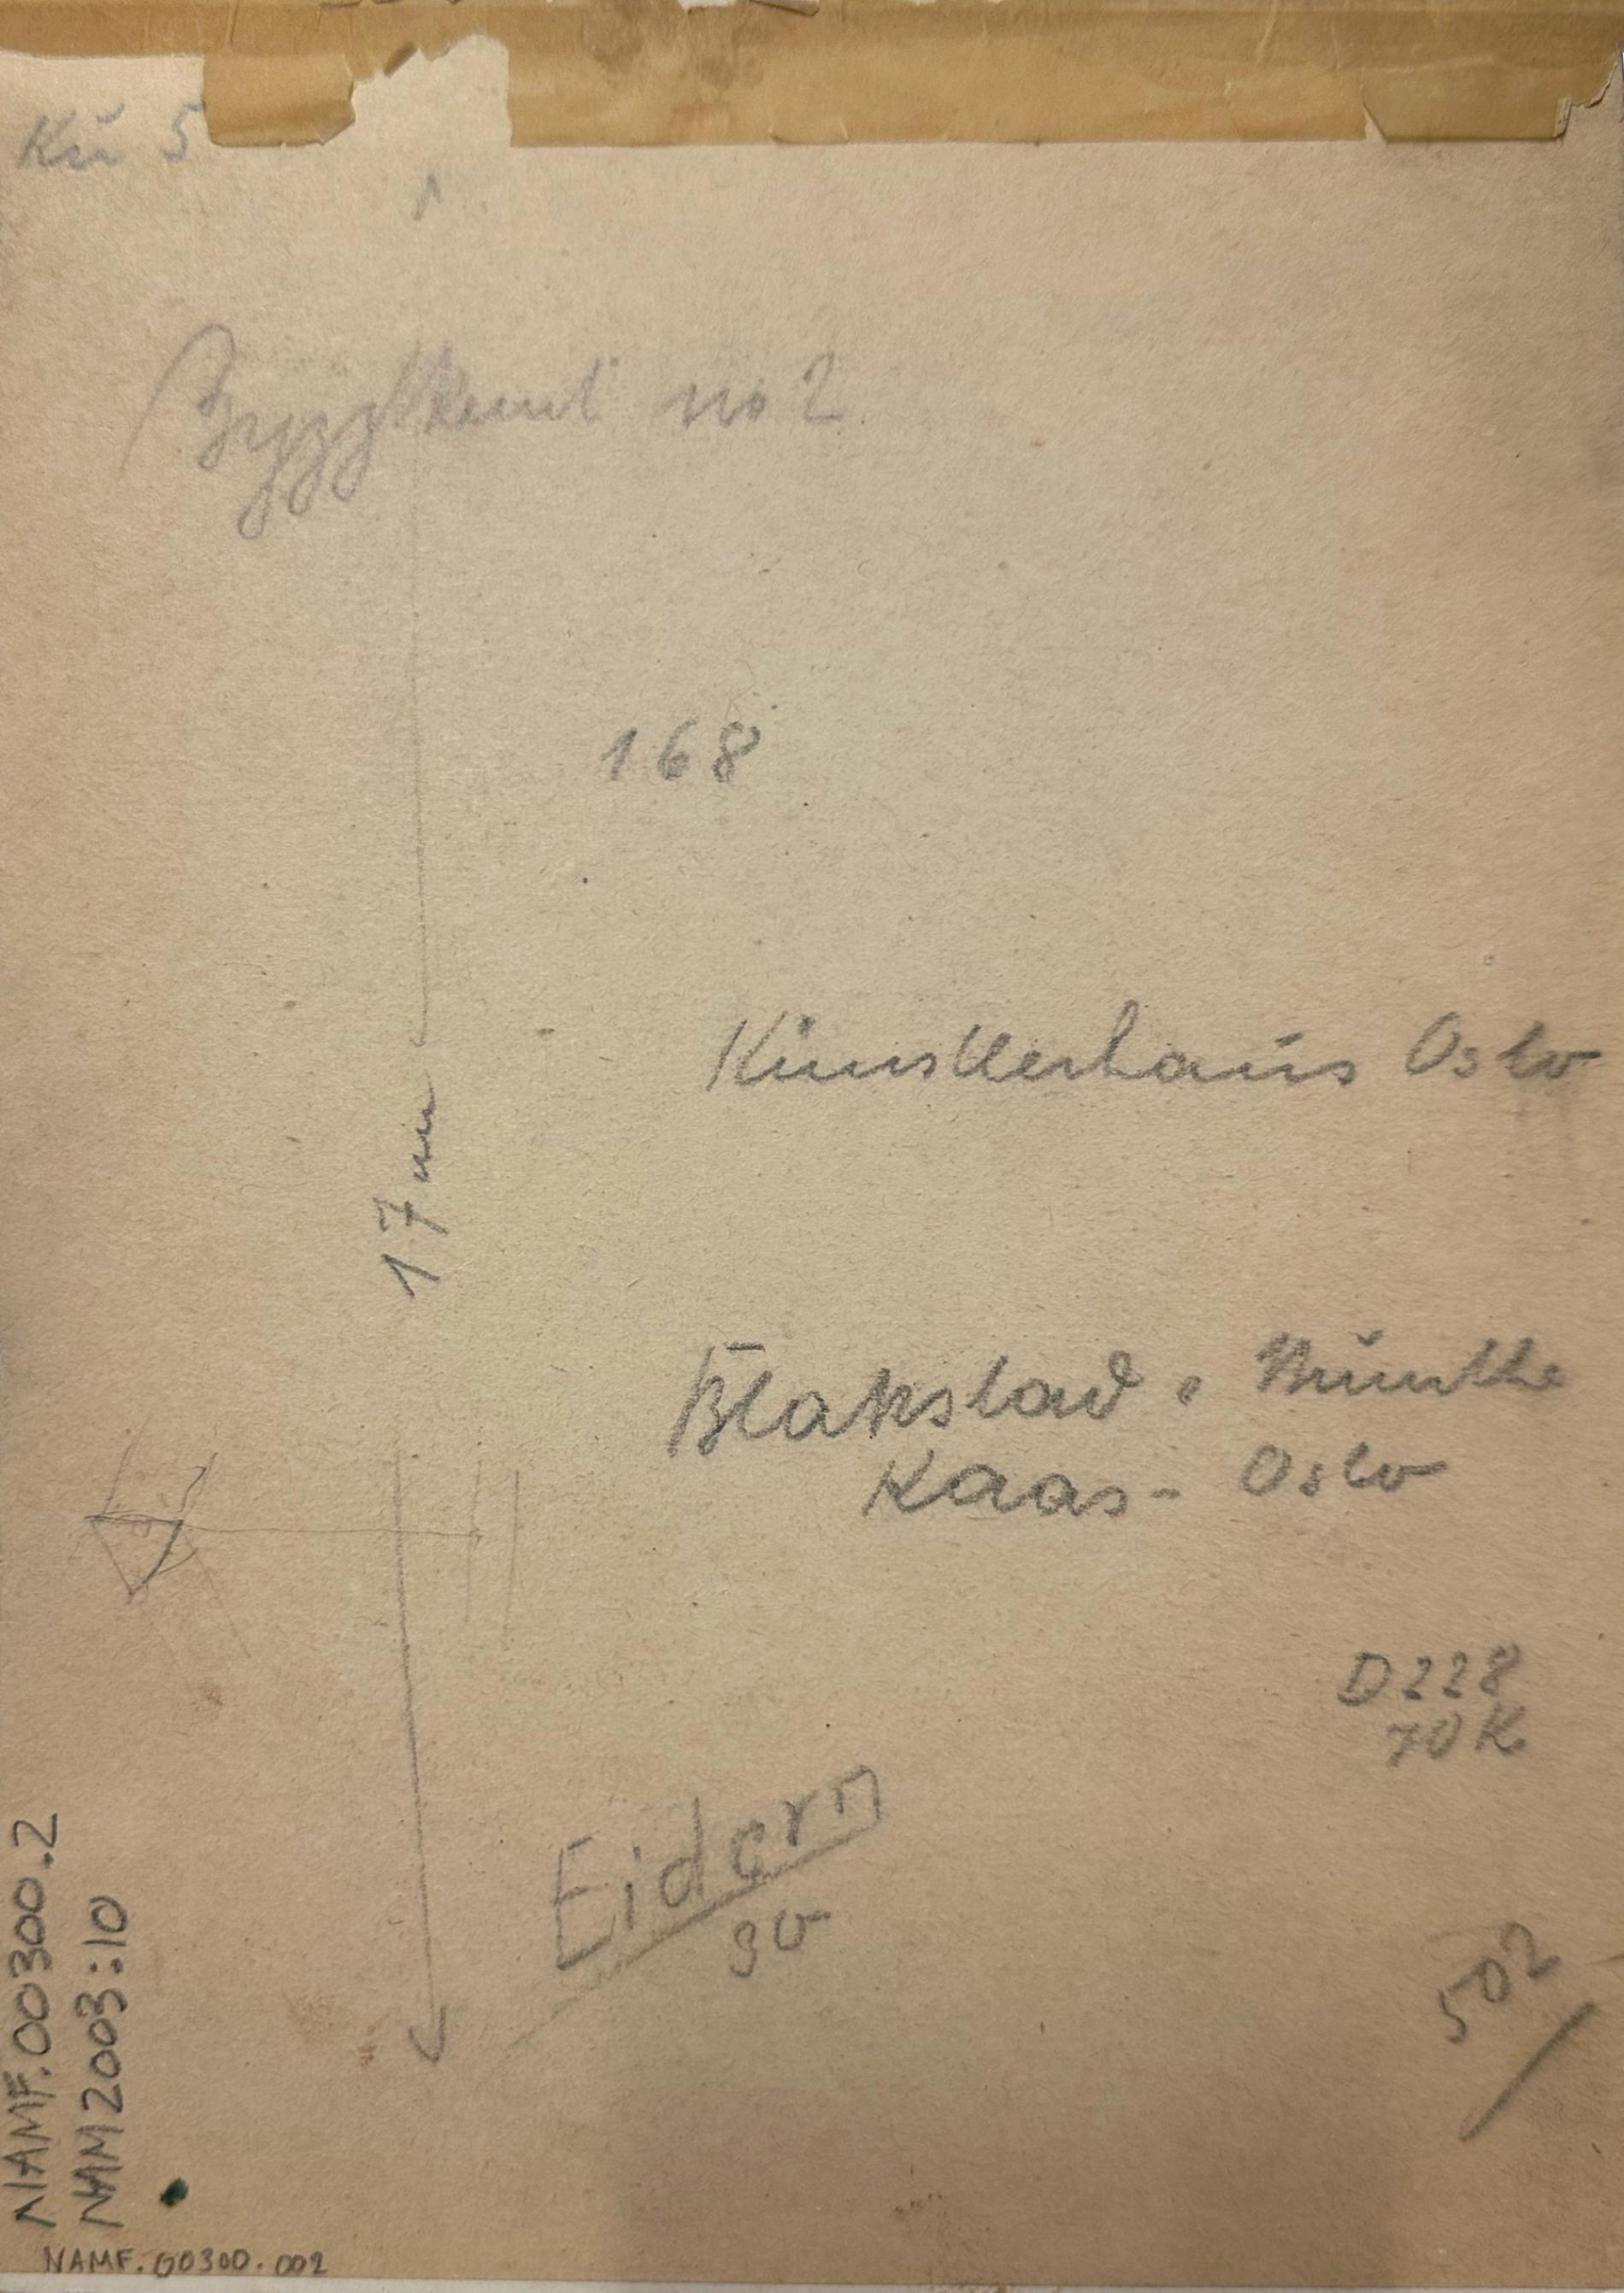 Kŭ 5
Byggekunst no 2
168
Künstlerhaŭs Oslo
17 cm
Blakstad . Mŭnthe
Kaas - Oslo
D228
70K
Eidern
90
502
NAMF.00300.2
NAM2003:10
NAMF.00300.002